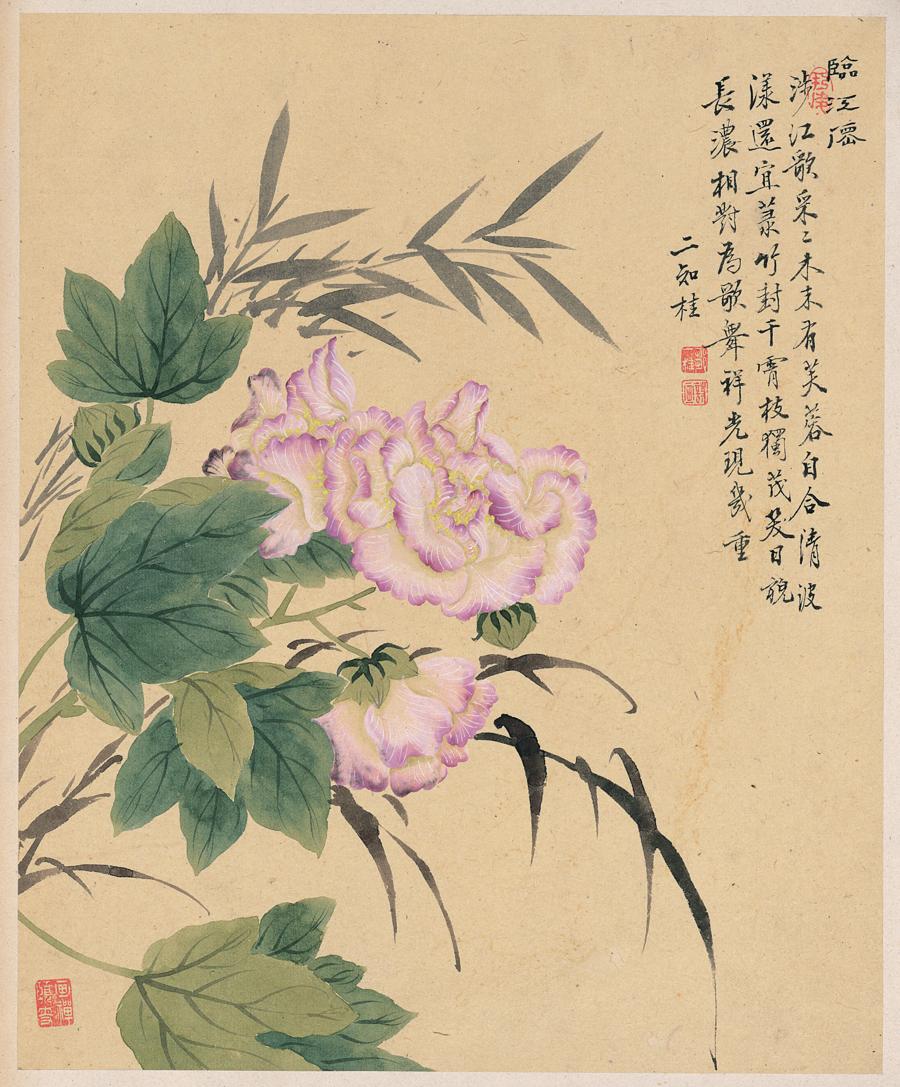 臨江僊
涉江歌采〻木末有芙蓉自合清波
漾還宜菉竹封干霄枝獨茂笑日靚
長濃相對為歌舞祥光現幾重
二知桂